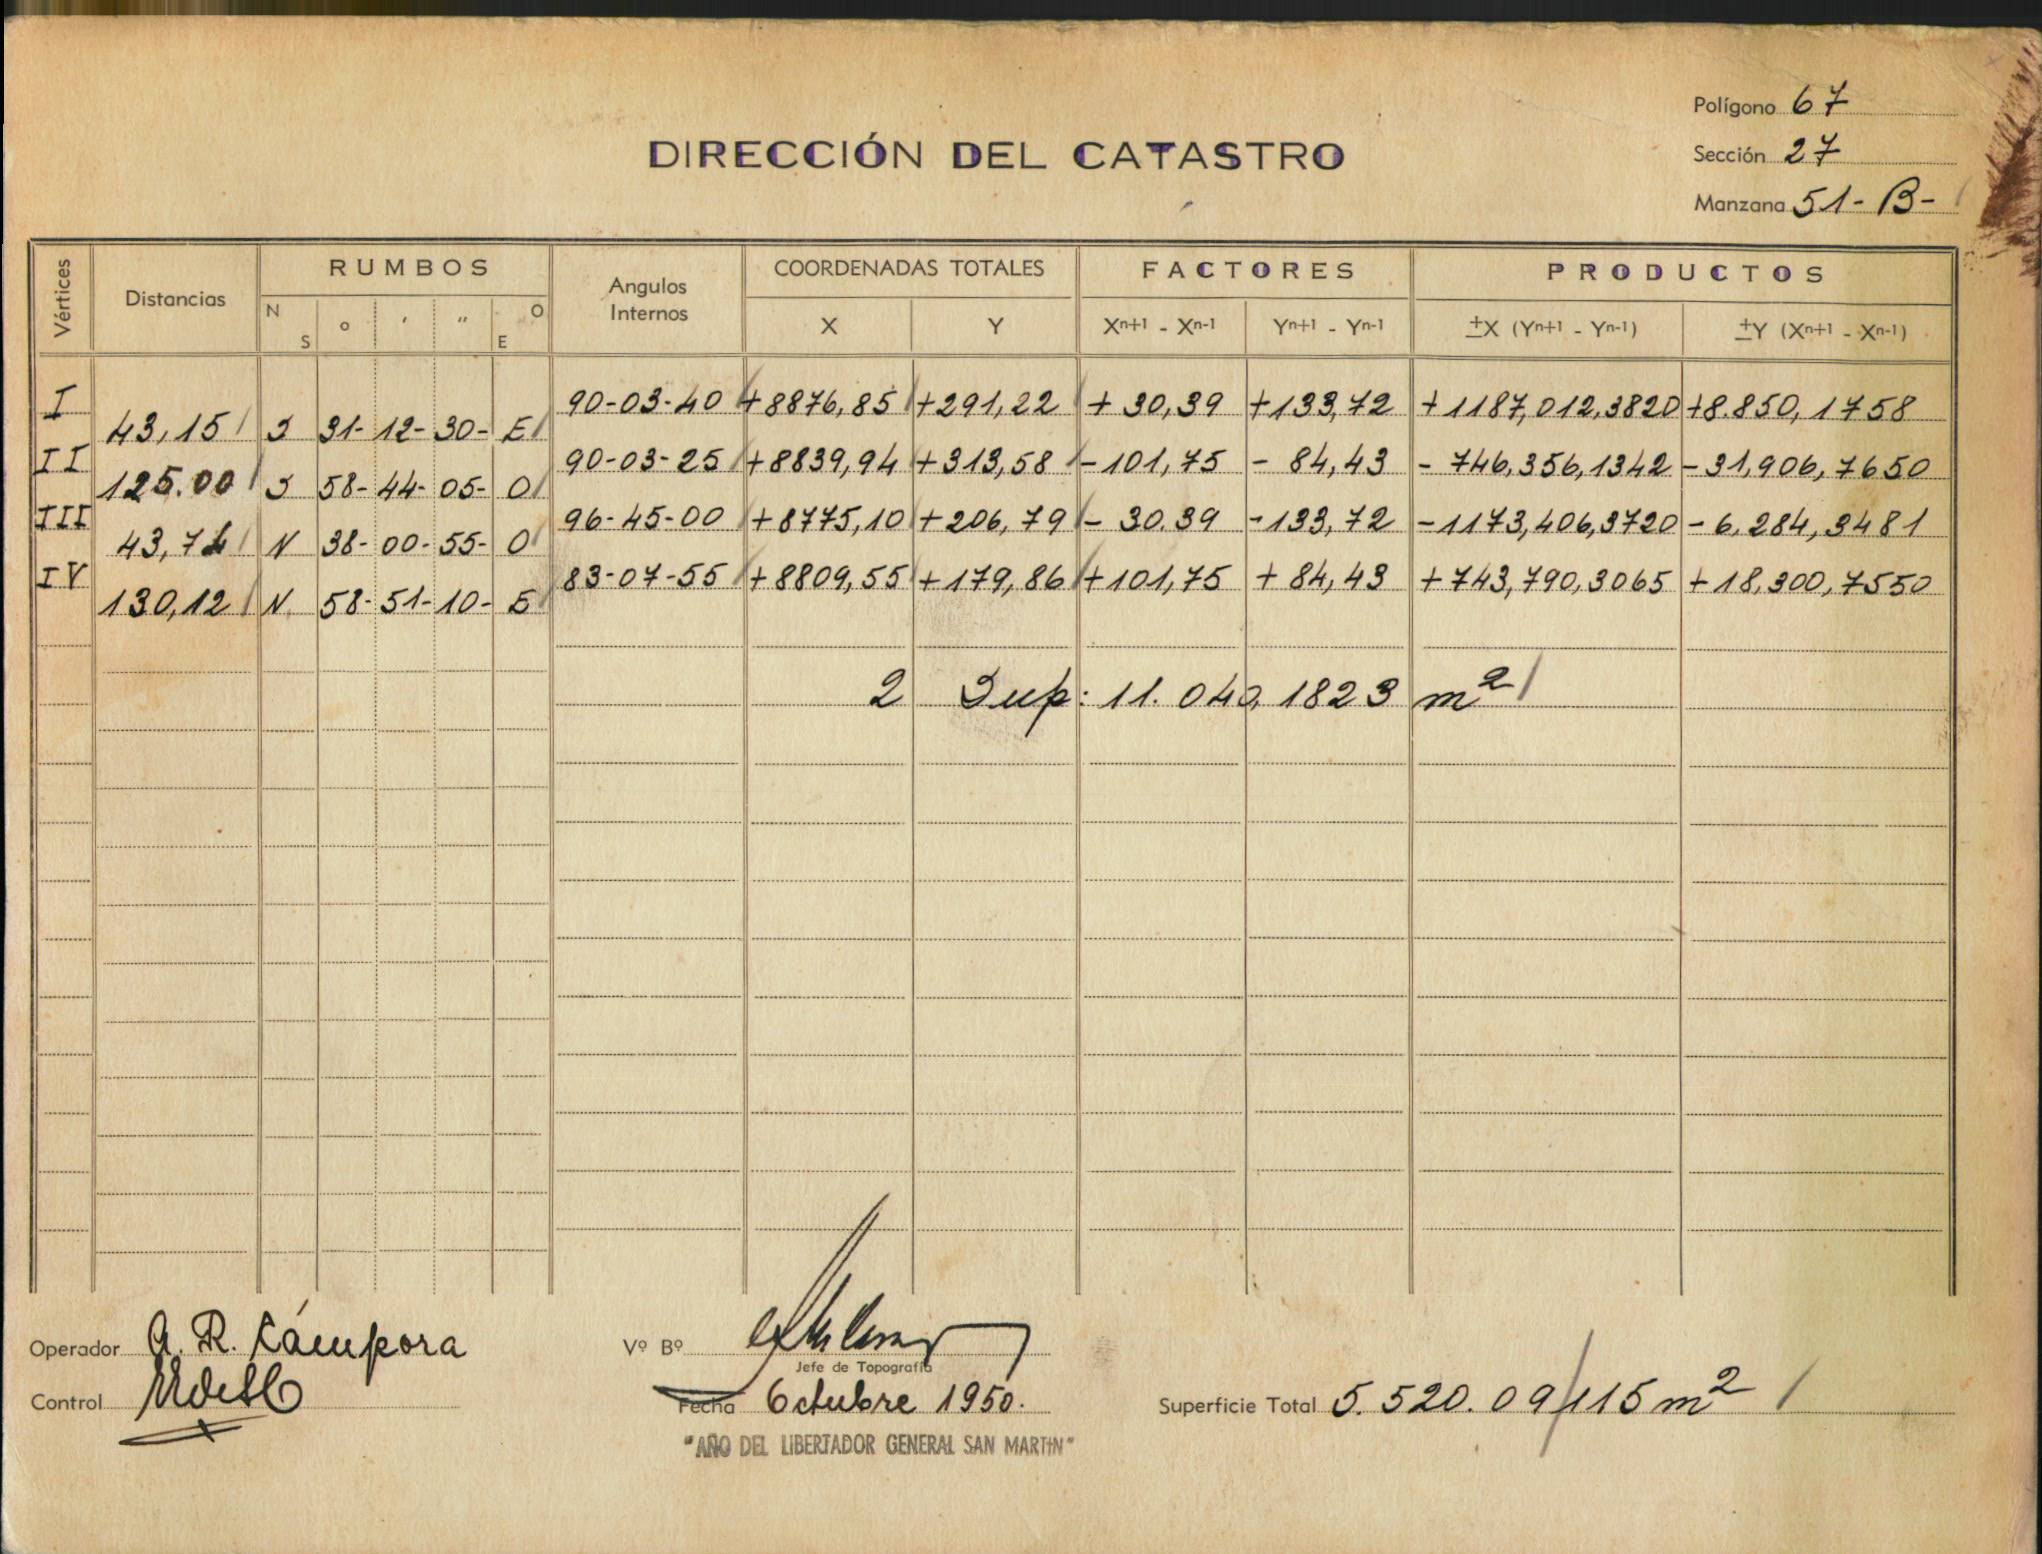 Polígono 67
DIRECCIÓN DEL CATASTRO
Sección 27
Manzana 51-B-
Vértices Distancias RUMBOS Angulos Internos COORDENADAS TOTALES FACTORES PRODUCTOS
N S ° ' " O E X Y Xn+1 - Xn-1 Yn+1 - Yn-1 ±X (Yn+1 - Yn-1) ±Y (Xn+1 - Xn-1)
I 90-03-40 +8876,85 +291,22 +30,39 +133,72 +1187,012,3820 +8.850,1758
43,15 S 31-12-30- E
II 90-03-25 +8839,94 +313,58 -101,75 -84,43 -746,356,1342 -31,906,7650
125.00 S 58-44-05- O
III 96-45-00 +8775,10 +206,79 -30.39 -133,72 -1173,406,3720 -6,284,3481
43,71 N 38-00-55- O
IV 83-07-55 +8809,55 +179,86 +101,75 +84,43 +743,790,3065 +18,300,7550
130,12 N 58-51-10- E
2 Sup: 11.040,1823 m²
Operador A. R. Cámpora
Vº Bº
Jefe de Topografía
Control
Fecha Octubre 1950.
Superficie Total 5.520.09/115 m²
"AÑO DEL LIBERTADOR GENERAL SAN MARTIN"